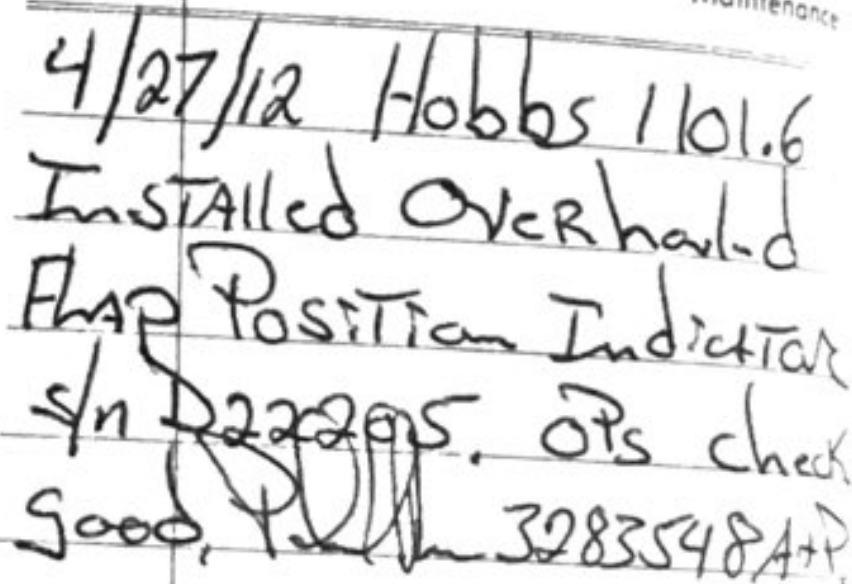 Maintenance
4/27/12 Hobbs 1101.6
Installed Overhauled
Flap Position Indictor
s/n D22205. OPs check
good. 3283548 A+P